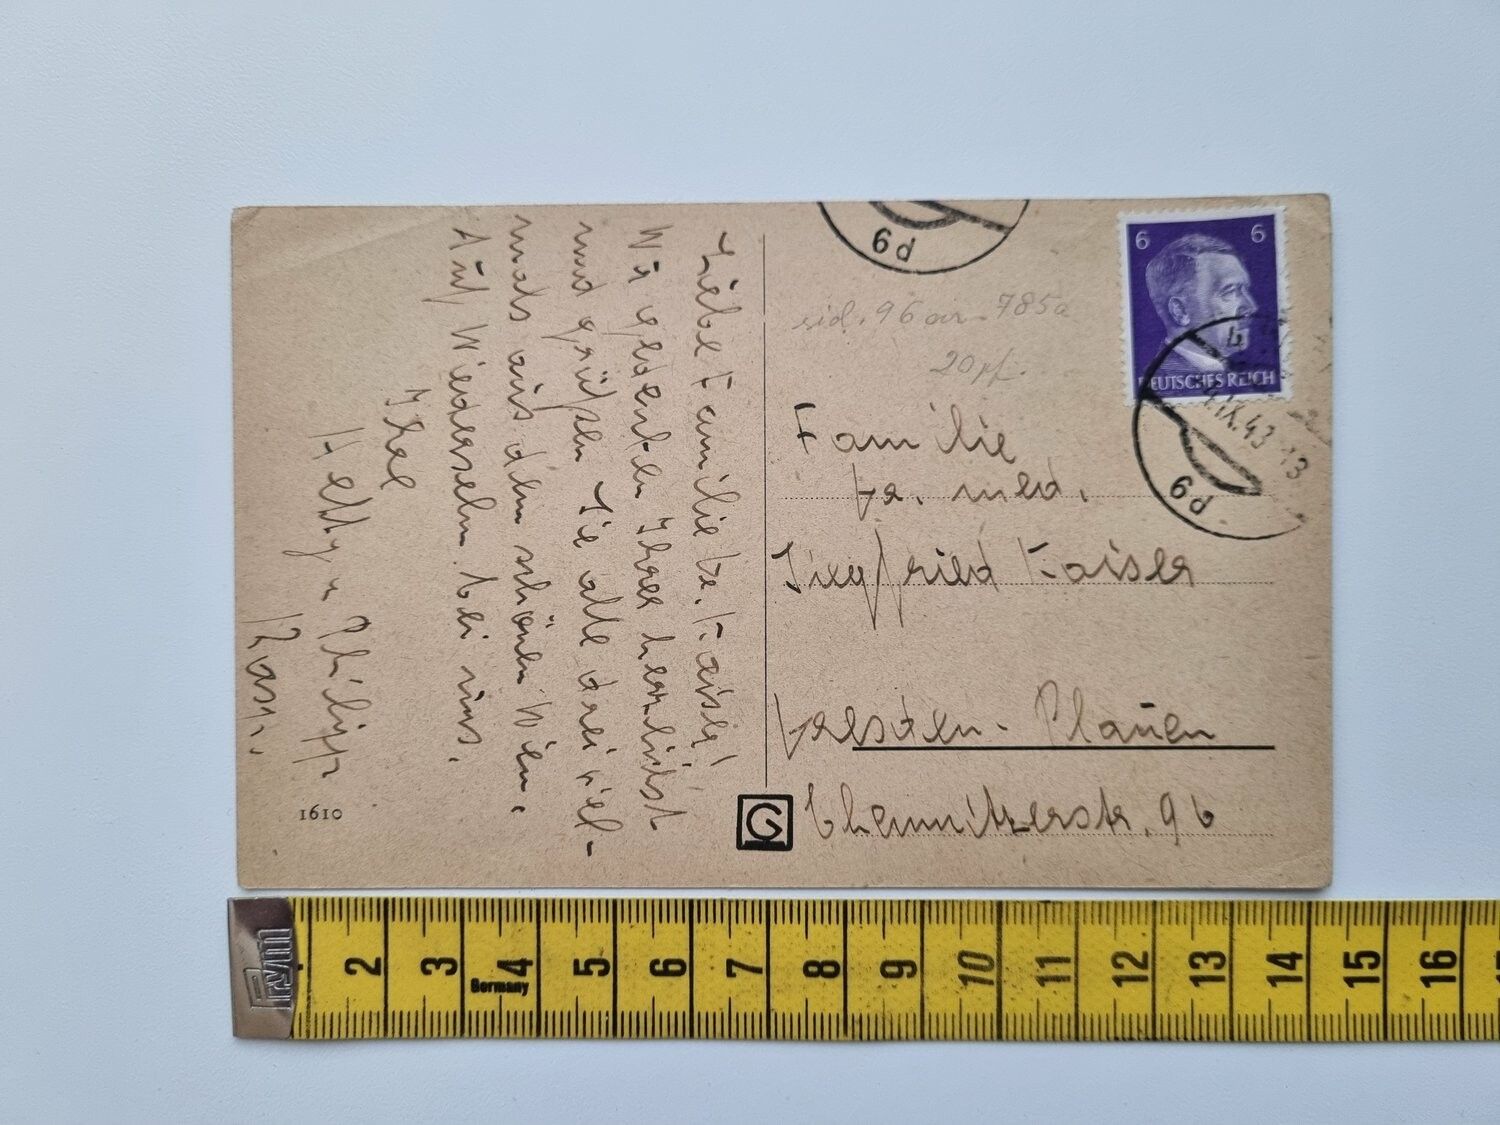 Liebe Familie Dr. Kaiser!
Wir gedenken Ihrer herzlichst
und grüßen Sie alle drei viel-
mals aus dem schönen Wien.
Auf Wiedersehn bei uns.
Ihre
Hedy u Philipp
1610
6 6
DEUTSCHES REICH
IX.43 13
6d
6d
20 pf.
Familie
Dr. med.
Siegfried Kaiser
Dresden - Plauen
Chemnitzerstr. 96
G
Prym
2 3 4 5 6 7 8 9 10 11 12 13 14 15 16
Germany